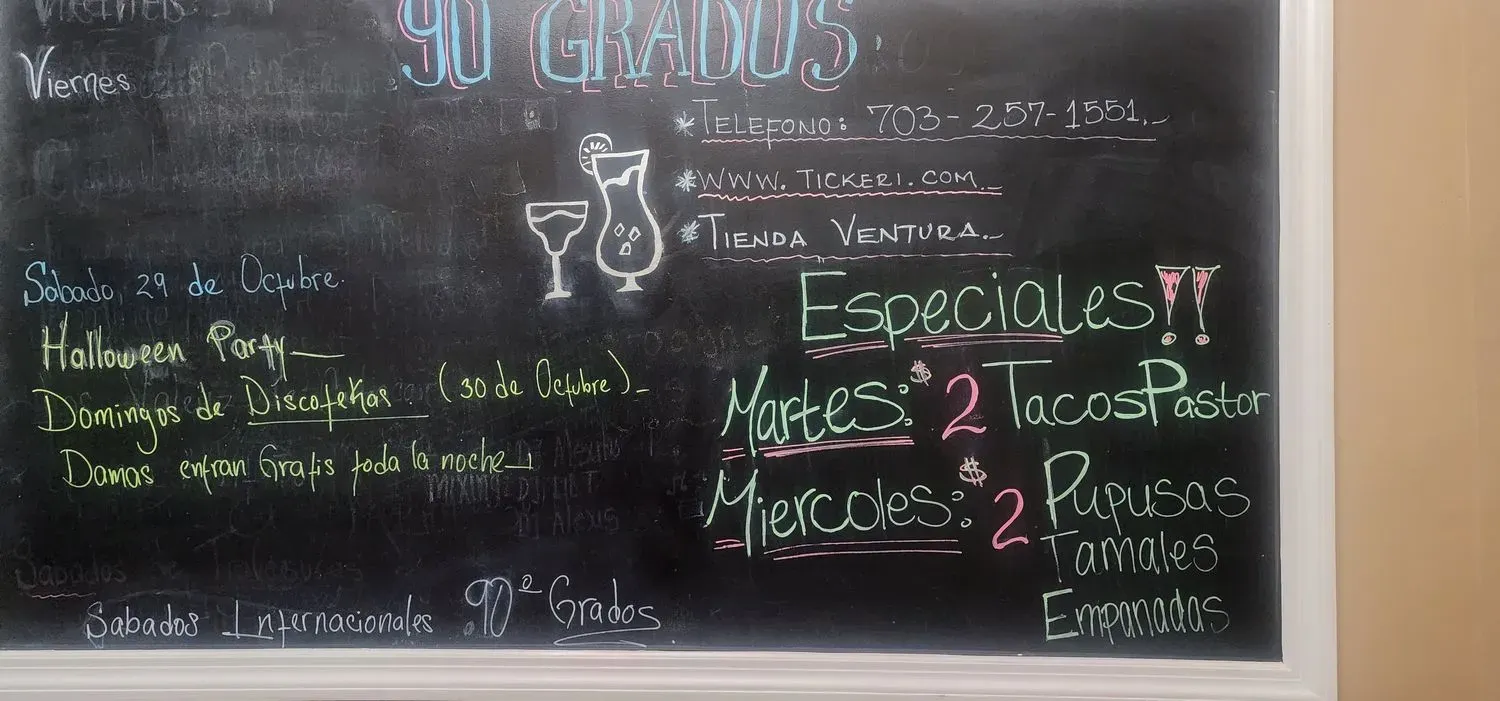 90 GRADOS
Viernes
* TELEFONO: 703-257-1551.
* WWW.TICKERI.COM.
* TIENDA VENTURA.
Sabado, 29 de Octubre.
Halloween Party
Domingos de Discotekas. (30 de Octubre)
Damas entran Gratis toda la noche
Sabados Internacionales 90° Grados
Especiales!!
Martes: $2 Tacos Pastor
Miercoles: $2 Pupusas
Tamales
Empanadas